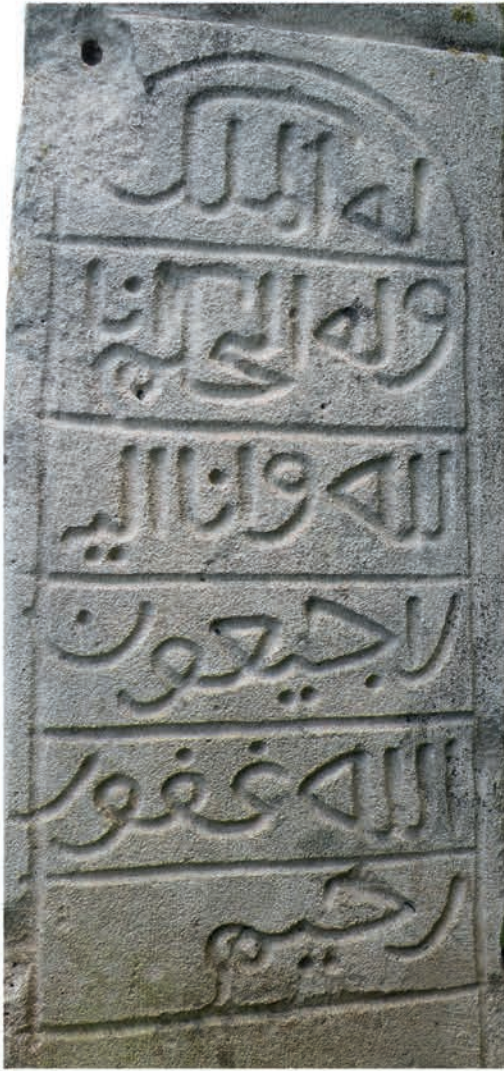 له الملك
وله الحكيم انا
لله وانا اليه
راجيعون
الله غفور
رحيم